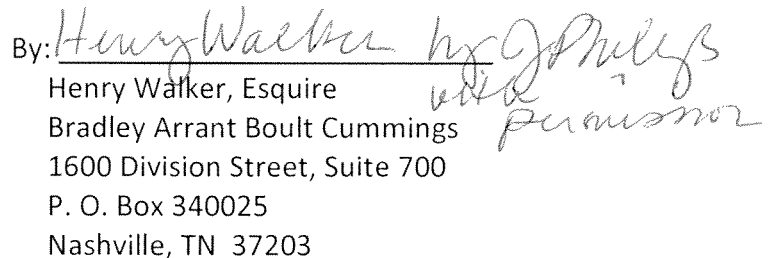 By: Henry Walker by J Phillips
with
permission
Henry Walker, Esquire
Bradley Arrant Boult Cummings
1600 Division Street, Suite 700
P. O. Box 340025
Nashville, TN 37203